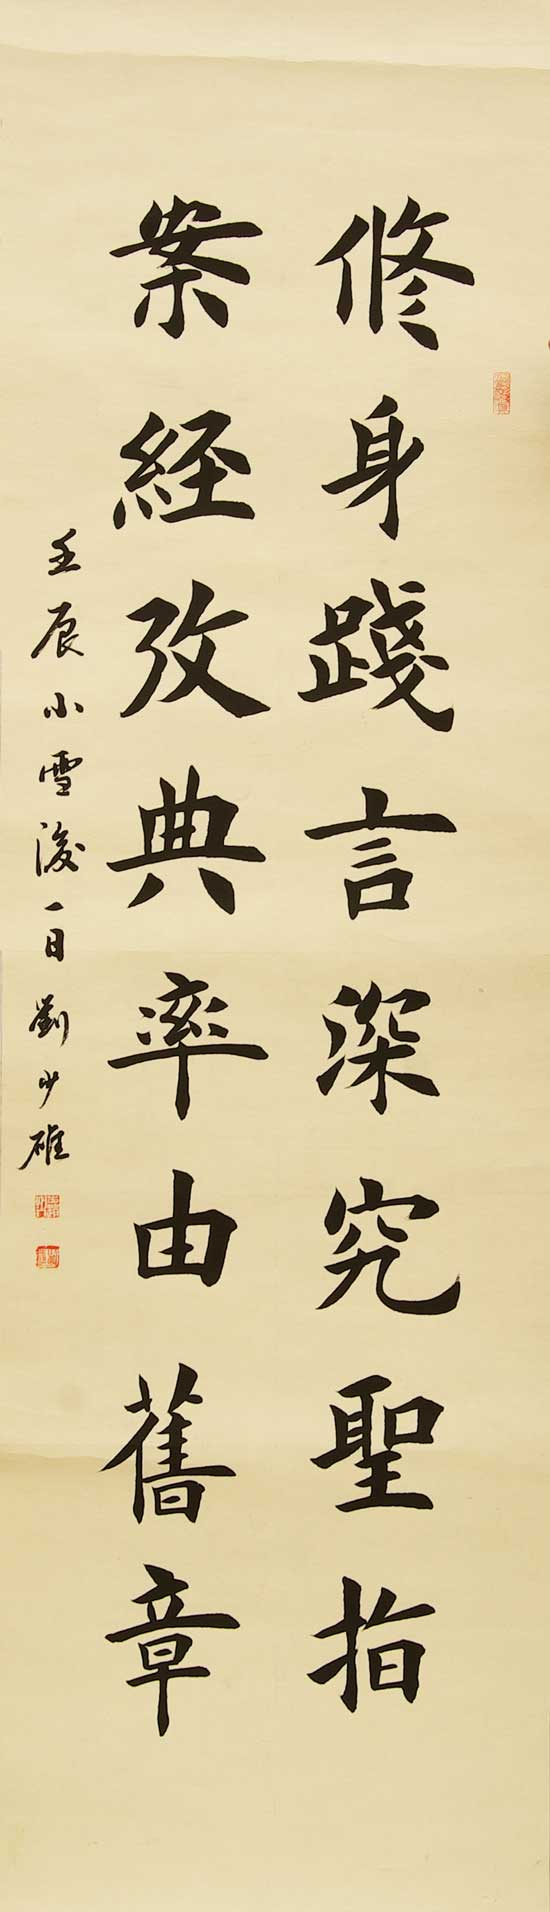 修身踐言深究聖指
案經攷典率由舊章
壬辰小雪後一日劉少雄